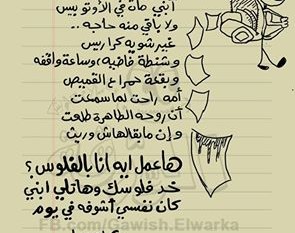 ابني مات في الأوتوبيس
ولا باقي منه حاجه ..
غير شوية كراريس
وشنطة فاضيه وساعة واقفه
وبقعة حمرا ع القميص
أمه راحت لما سمعت
ان روحه الطاهرة طلعت
وان مابقالهاش وريث
هاعمل ايه أنا بالفلوس ؟
خد فلوسك وهاتلي ابني
كان نفسي أشوفه في يوم
FB.com/Gawish.Elwarka